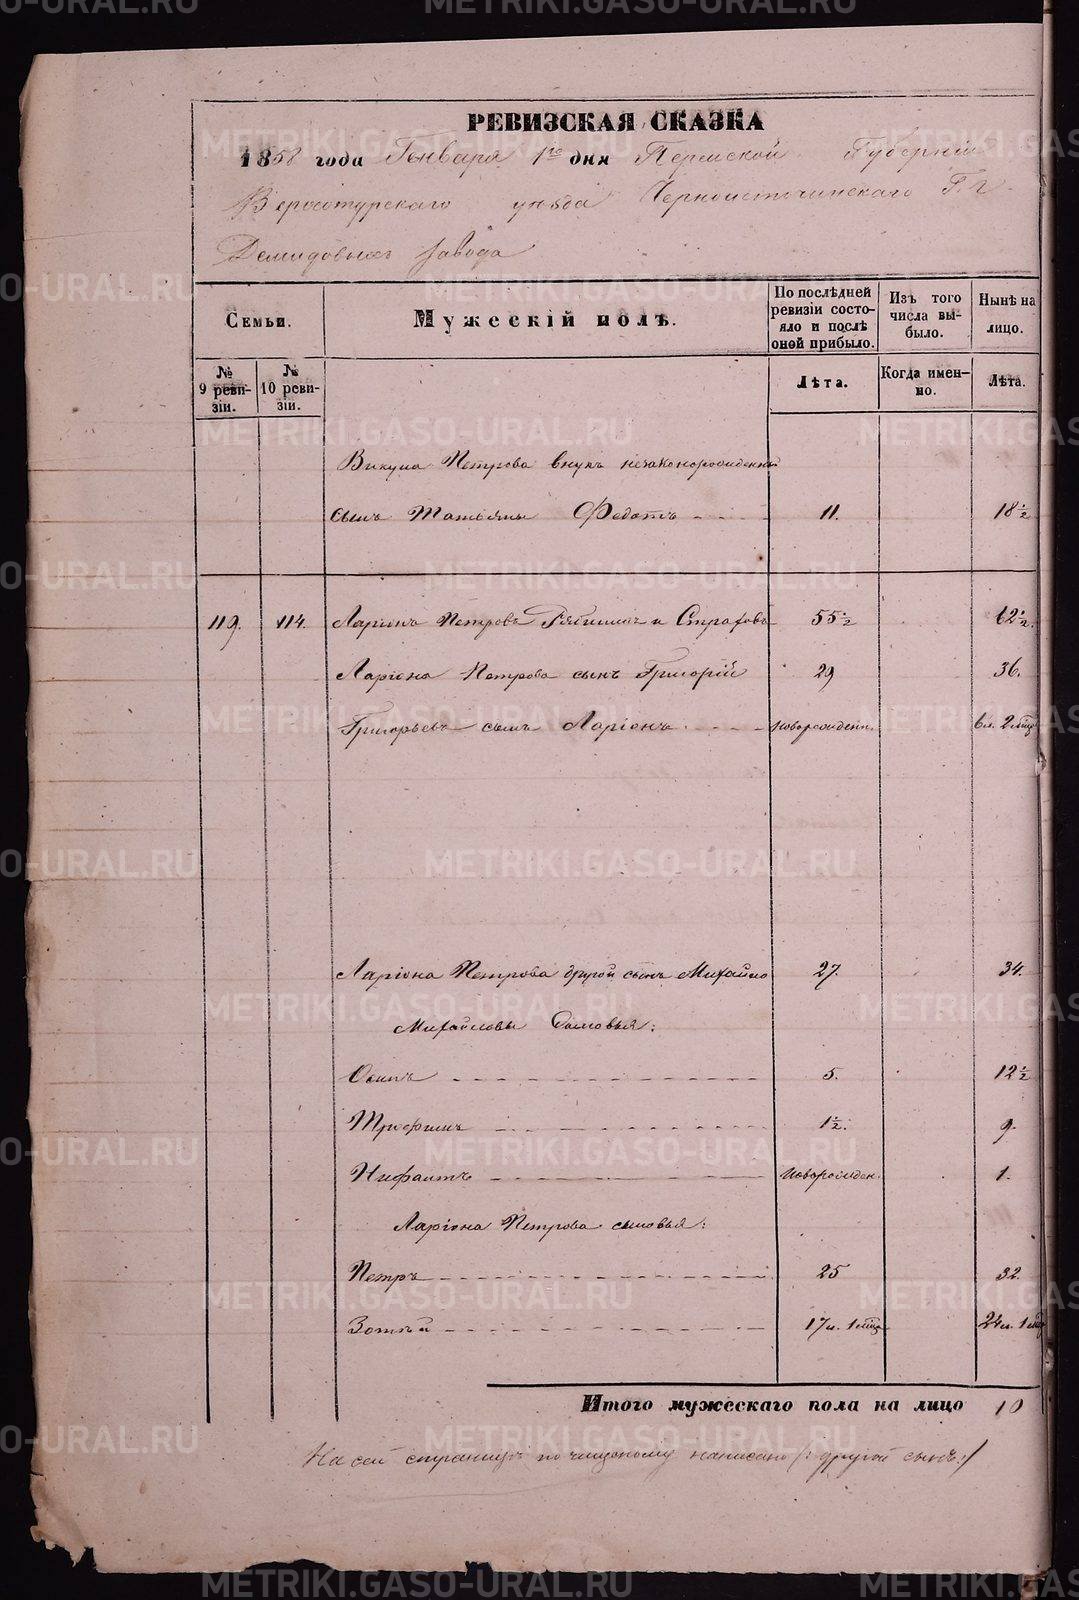 РЕВИЗСКАЯ СКАЗКА
1858 года Генваря 1го дня Пермской Губерніи
Верхотурскаго уѣзда Черноисточинскаго Г.г.
Демидовыхъ завода
Семьи.
Мужескій полъ.
По послѣдней ревизіи состояло и послѣ оной прибыло.
Изъ того числа выбыло.
Нынѣ на лицо.
№ 9 ревизіи.
№ 10 ревизіи.
Лѣта.
Когда именно.
Лѣта.
Викула Петрова внукъ незаконорожденный
сынъ Татьяны Федотъ 11. 18½
119. 114. Ларіонъ Петровъ и Страховъ 55½ 62½.
Ларіона Петрова сынъ Григорій 29 36.
Григорьевъ сынъ Ларіонъ новорожден. 6 л. 2 мѣс
Ларіона Петрова другой сынъ Михайло 27. 34.
Михайловы сыновья:
Осипъ 5. 12½
Трофимъ 1½. 9.
Нифантъ новорожден. 1.
Ларіона Петрова сыновья:
Петръ 25 32.
Зотѣй 17 л. 1 мѣс 24 л. 1 мѣс
Итого мужескаго пола на лицо 10
На сей страницѣ по чищеному написано /: другой сынъ :/
METRIKI.GASO-URAL.RU